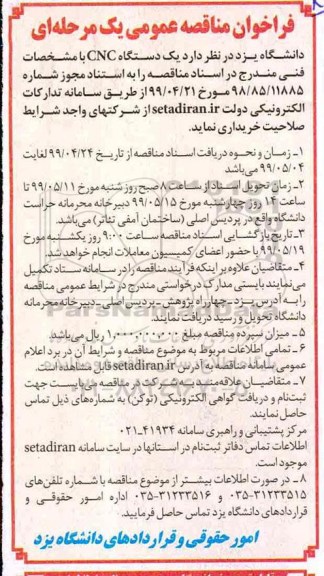 فراخوان مناقصه عمومی یک مرحله‌ای
دانشگاه یزد در نظر دارد یک دستگاه CNC با مشخصات
فنی مندرج در اسناد مناقصه را به استناد مجوز شماره
۹۸/۸۵/۱۱۸۸۵ مورخ ۹۹/۰۴/۲۱ از طریق سامانه تدارکات
الکترونیکی دولت setadiran.ir از شرکتهای واجد شرایط
صلاحیت خریداری نماید.
۱ـ زمان و نحوه دریافت اسناد مناقصه از تاریخ ۹۹/۰۴/۲۴ لغایت
۹۹/۰۵/۰۴ می‌باشد
۲ـ زمان تحویل اسناد از ساعت ۸ صبح روز شنبه مورخ ۹۹/۰۵/۱۱ تا
ساعت ۱۴ روز چهارشنبه مورخ ۹۹/۰۵/۱۵ دبیرخانه محرمانه حراست
دانشگاه واقع در پردیس اصلی (ساختمان آمفی تئاتر) می‌باشد.
۳ـ تاریخ بازگشایی اسناد مناقصه ساعت ۹:۰۰ روز یکشنبه مورخ
۹۹/۰۵/۱۹ با حضور اعضای کمیسیون معاملات انجام خواهد شد.
۴ـ متقاضیان علاوه بر اینکه فرآیند مناقصه را در سامانه ستاد تکمیل
می‌نمایند بایستی مدارک درخواستی مندرج در شرایط عمومی مناقصه
را به آدرس یزد ـ چهارراه پژوهش ـ پردیس اصلی ـ دبیرخانه محرمانه
دانشگاه تحویل و رسید دریافت نمایند.
۵ـ میزان سپرده مناقصه مبلغ ۱،۰۰۰،۰۰۰،۰۰۰ ریال می‌باشد.
۶ـ تمامی اطلاعات مربوط به موضوع مناقصه و شرایط آن در برد اعلام
عمومی سامانه مناقصه به آدرس setadiran.ir قابل مشاهده است.
۷ـ متقاضیان علاقه‌مند به شرکت در مناقصه می‌بایست جهت
ثبت‌نام و دریافت گواهی الکترونیکی (توکن) به شماره‌های ذیل تماس
حاصل نمایند.
مرکز پشتیبانی و راهبری سامانه ۴۱۹۳۴ـ۰۲۱
اطلاعات تماس دفاتر ثبت‌نام در استانها در سایت سامانه setadiran
موجود است.
۸ـ در صورت اطلاعات بیشتر از موضوع مناقصه با شماره تلفن‌های
۰۳۵ـ۳۱۲۳۳۵۱۵ و ۰۳۵ـ۳۱۲۳۳۵۱۶ اداره امور حقوقی و
قراردادهای دانشگاه یزد تماس حاصل فرمایید.
امور حقوقی و قراردادهای دانشگاه یزد